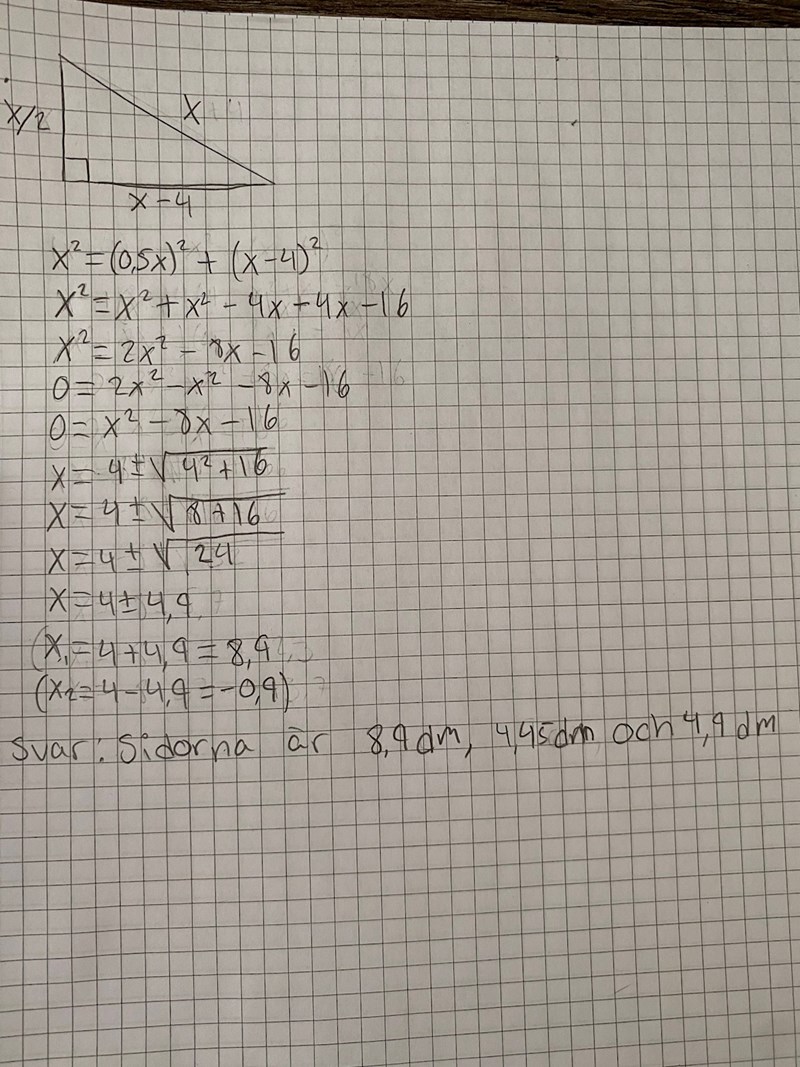 x/2
x
x-4
x² = (0,5x)² + (x-4)²
x² = x² + x² - 4x - 4x - 16
x² = 2x² - 8x - 16
0 = 2x² - x² - 8x - 16
0 = x² - 8x - 16
x = 4 ± √4² + 16
x = 4 ± √8 + 16
x = 4 ± √24
x = 4 ± 4,9
(x₁ = 4 + 4,9 = 8,9
(x₂ = 4 - 4,9 = -0,9)
Svar: Sidorna är 8,9 dm, 4,45 dm och 4,9 dm